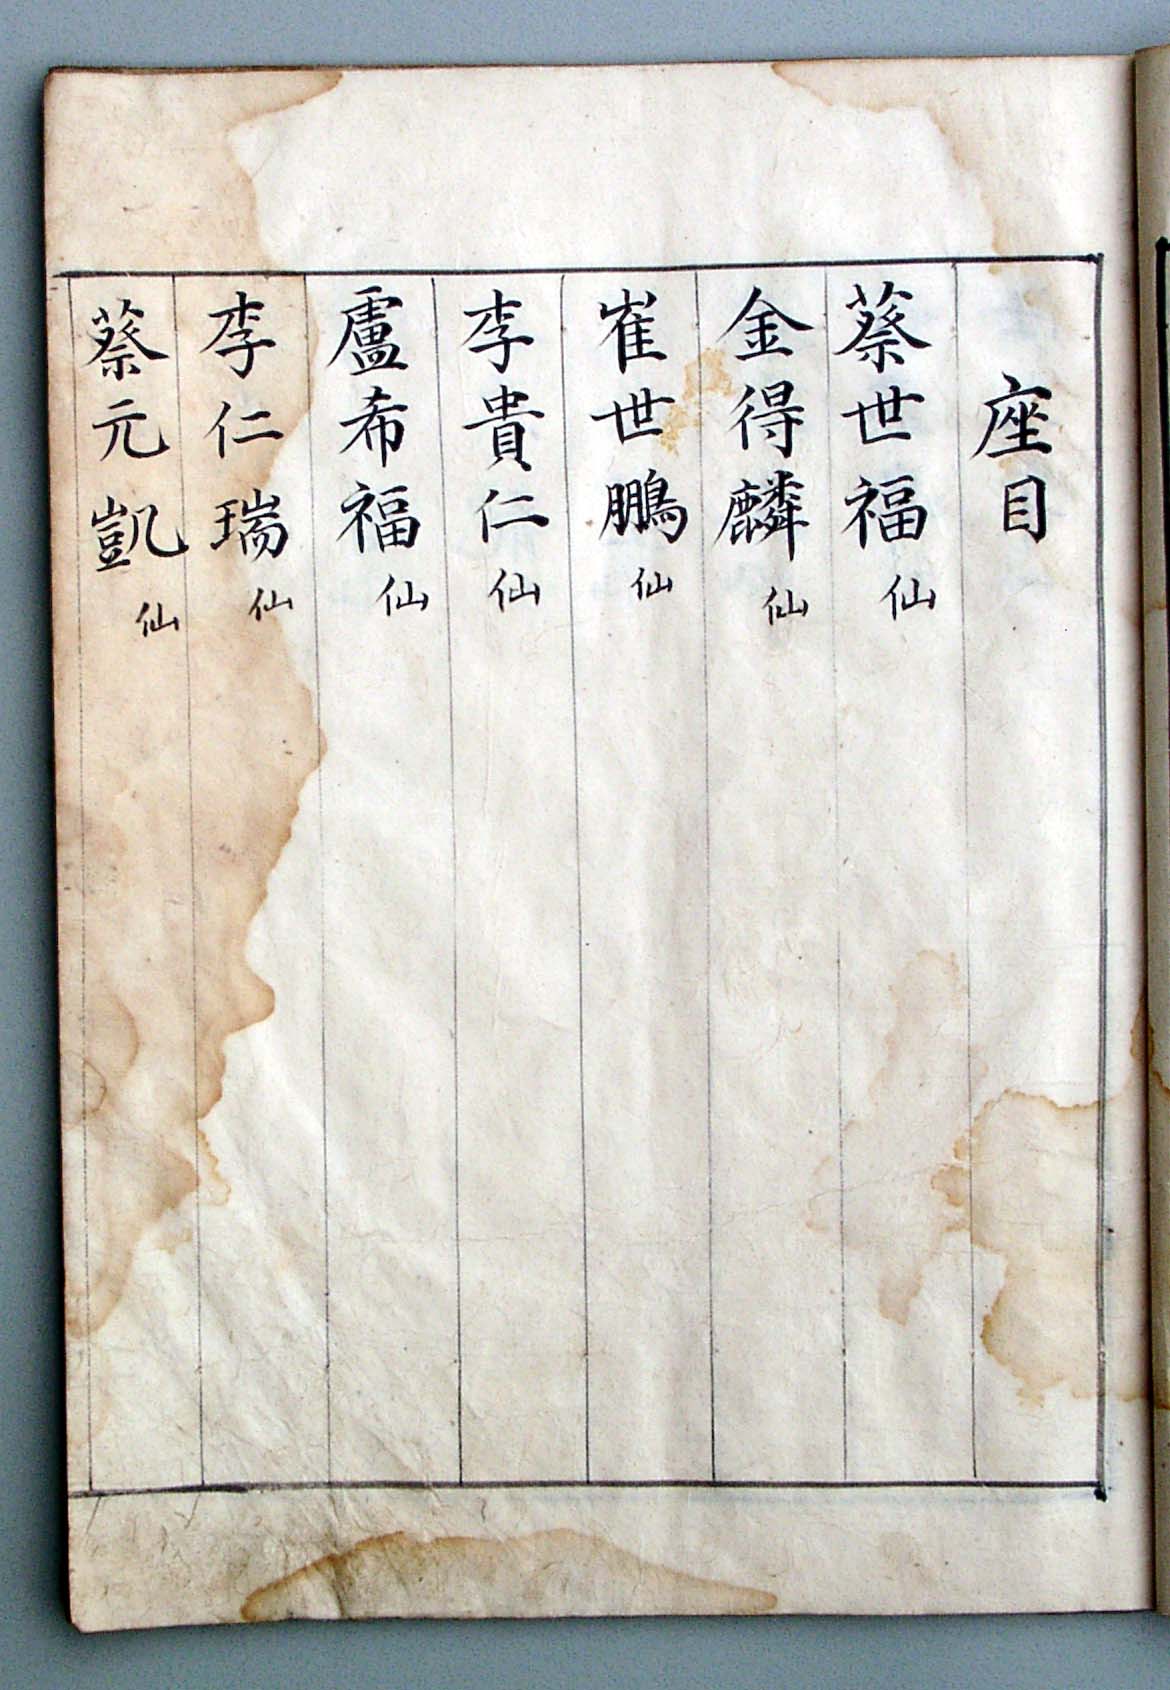 座目
蔡世福仙
金得麟仙
崔世鵬仙
李貴仁仙
盧希福仙
李仁瑞仙
蔡元凱仙